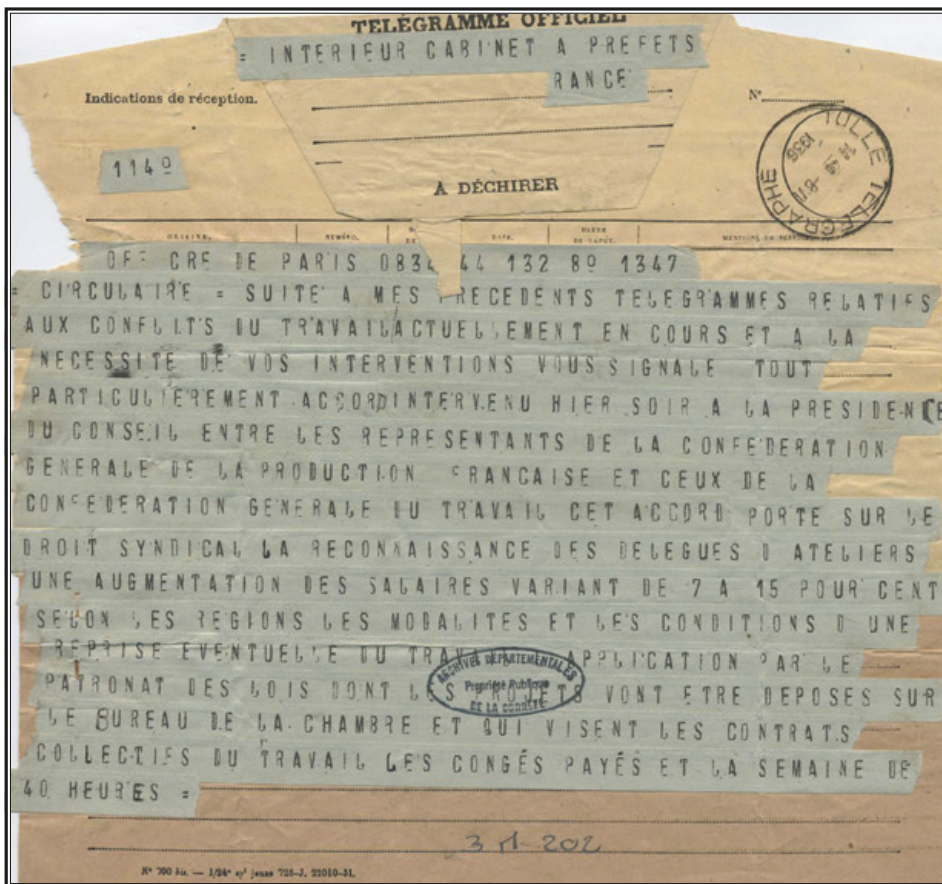 TELÉGRAMME OFFICIEL
= INTERIEUR CABINET A PREFETS
RANCE
Indications de réception.
N°
1149
TULLE TELEGRAPHE
1936
A DÉCHIRER
ORIGINE. NUMÉRO. DATE. HEURE DE DÉPÔT. MENTIONS DE SERVICE.
OFF CRE DE PARIS 0834 44 132 89 1347
= CIRCULAIRE = SUITE A MES PRECEDENTS TELEGRAMMES RELATIFS
AUX CONFLITS DU TRAVAILACTUELLEMENT EN COURS ET A LA
NECESSITE DE VOS INTERVENTIONS VOUS SIGNALE TOUT
PARTICULIEREMENT ACCORDINTERVENU HIER SOIR A LA PRESIDENCE
DU CONSEIL ENTRE LES REPRESENTANTS DE LA CONFEDERATION
GENERALE DE LA PRODUCTION FRANCAISE ET CEUX DE LA
CONFEDERATION GENERALE DU TRAVAIL CET ACCORD PORTE SUR LE
DROIT SYNDICAL LA RECONNAISSANCE DES DELEGUES D ATELIERS
UNE AUGMENTATION DES SALAIRES VARIANT DE 7 A 15 POUR CENT
SELON LES REGIONS LES MODALITES ET LES CONDITIONS D UNE
REPRISE EVENTUELLE DU TRAVAIL APPLICATION PAR LE
PATRONAT DES LOIS DONT LES PROJETS VONT ETRE DEPOSES SUR
LE BUREAU DE LA CHAMBRE ET QUI VISENT LES CONTRATS
COLLECTIFS DU TRAVAIL LES CONGÉS PAYÉS ET LA SEMAINE DE
40 HEURES =
ARCHIVES DÉPARTEMENTALES
Propriété Publique
DE LA CORRÈZE
3 M 202
N° 700 bis. — 1/24e jaune 728-J. 22010-31.